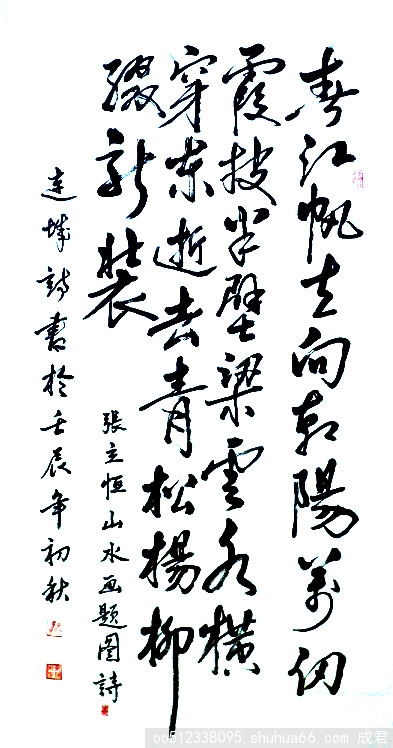 春江帆去向朝陽萬仞
霞披半壁梁雲水橫
穿東逝去青松楊柳
綴新裝
張立恒山水画題圖詩
城詩書於壬辰年初秋
oo512338095.shuhua66.com/成君